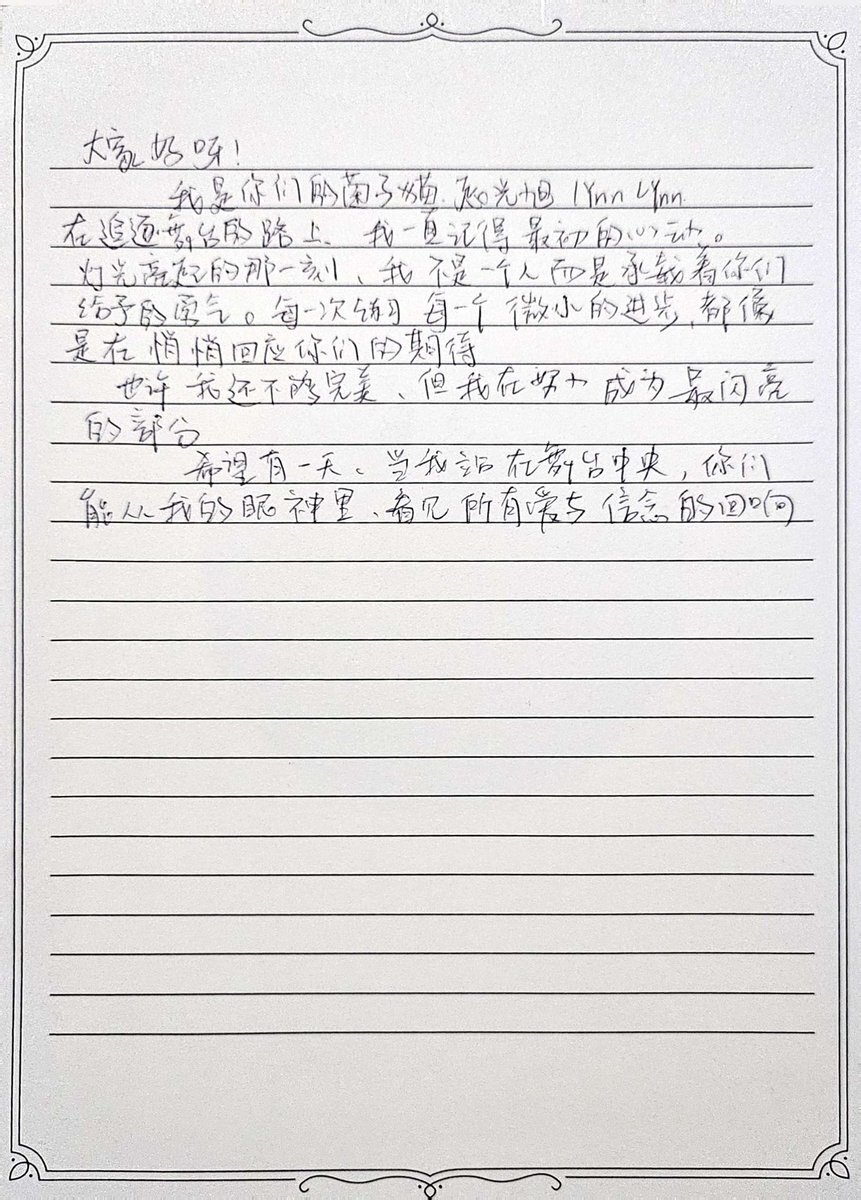 大家好呀!
我是你们的菌子猫. 光旭 lynn Lynn.
在追逐舞台的路上、我一直记得最初的心动。
灯光亮起的那一刻、我不是一个人而是承载着你们
给予的勇气。每一次练习 每一个 微小的进步,都像
是在 悄悄回应你们的期待
也许 我还不够完美、但我在努力 成为 最闪亮
的部分
希望有一天、当我站在舞台中央,你们
能从我的眼神里、看见 所有爱与 信念的回响